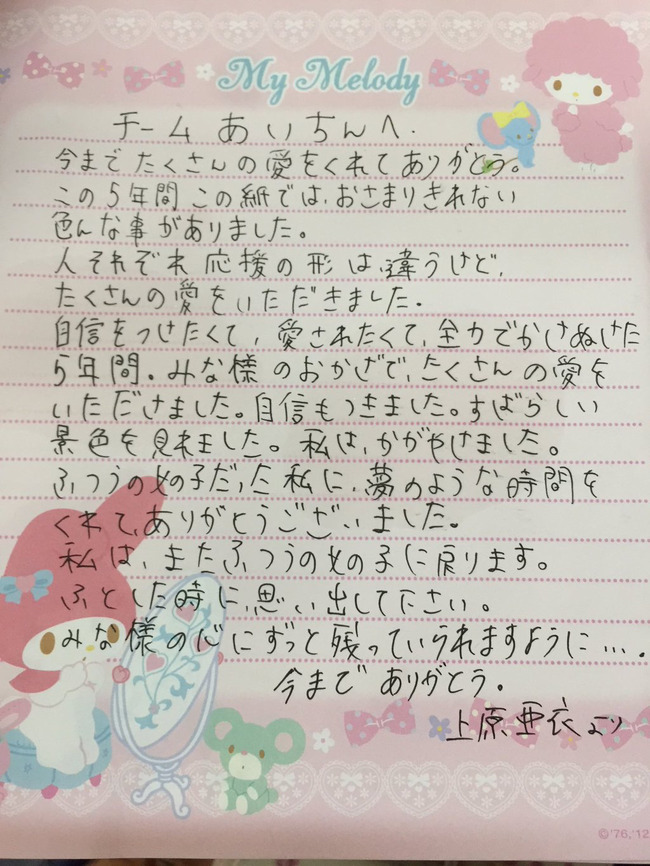 My Melody
チームあいちんへ.
今までたくさんの愛をくれてありがとう。
この5年間この紙では、おさまりきれない
色んな事がありました。
人それぞれ応援の形は、違うけど、
たくさんの愛をいただきました.
自信をつけたくて、愛されたくて、全力でかけぬけた
5年間.みな様のおかげで、たくさんの愛を
いただけました。自信もつきました。すばらしい
景色を見れました。私は、かがやけました。
ふつうの女の子だった私に、夢のような時間を
くれて、ありがとうございました。
私は、またふつうの女の子に戻ります。
ふとした時に、思い出して下さい。
みな様の心にずっと残っていられますように….
今までありがとう.
上原亜衣より
©'76,'12